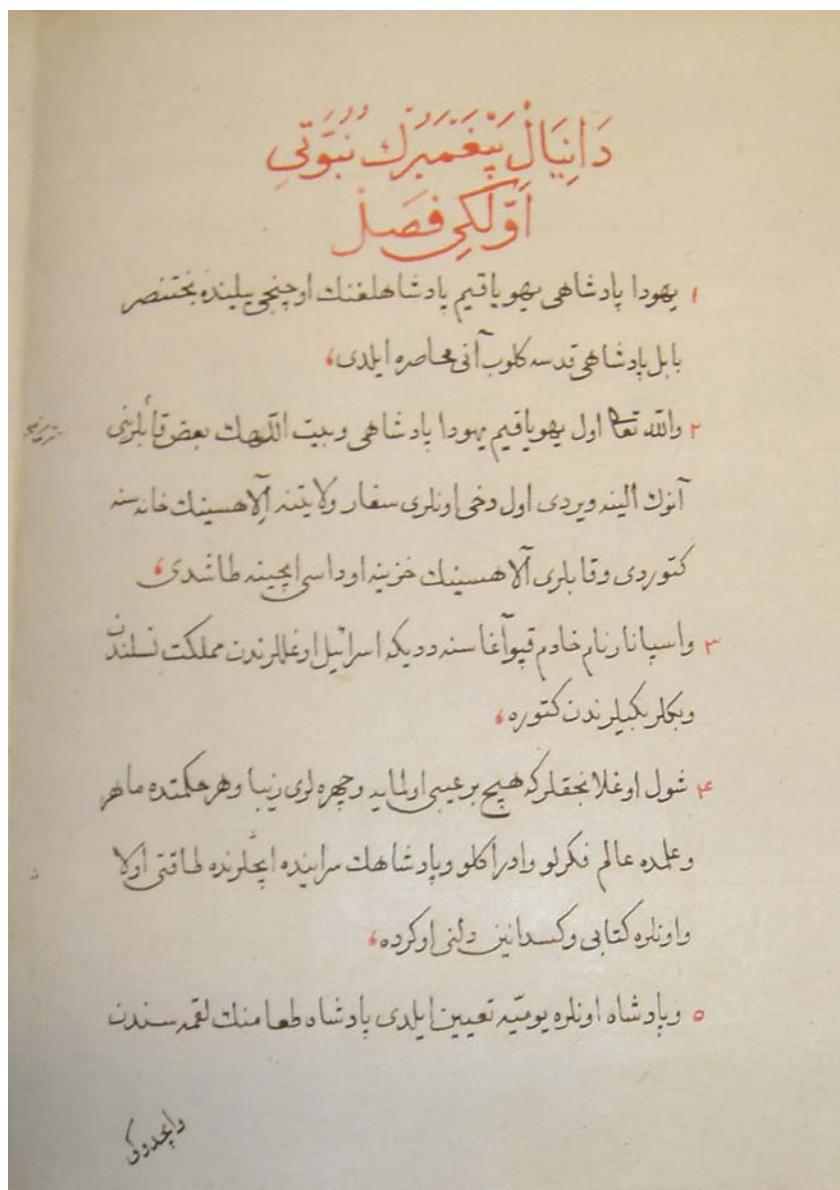 دَانِيَالْ پَيْغَمْبَرِكْ نُبُوَّتِي
اَوَّلْكِي فَصِلْ
۱ يهودا پادشاهى يهوياقيم پادشاهلغنك اوچنجى ييلنده بختنصر
بابل پادشاهى قدسه كلوب آنى محاصره ايلدى،
۲ والله تعالى اول يهوياقيم يهودا پادشاهى وبيت اللهك بعض قابلرينى
آنوك الينه ويردى اول دخى اونلرى سنعار ولايتنه آلاهسينك خانه سنه
كتوردى وقابلرى آلاهسينك خزينه اوداسى ايچينه طاشدى،
۳ واسپاناز نام خادم قپو آغاسنه دديكه اسرائيل اوغللرندن مملكت نسلندن
وبكلربكيلرندن كتوره،
۴ شول اوغلانجقلركه هيچ بر عيبى اولمايه وچهره لرى زيبا وهر حكمتده ماهر
وعلمده عالم فكرلو وادراكلو وپادشاهك سراينده ايچلرنده طاقتى اولا
واونلره كتابى وكسدانين دلنى اوكرده،
۵ وپادشاه اونلره يوميّه تعيين ايلدى پادشاه طعامنك لقمه سندن
وايچدوكى